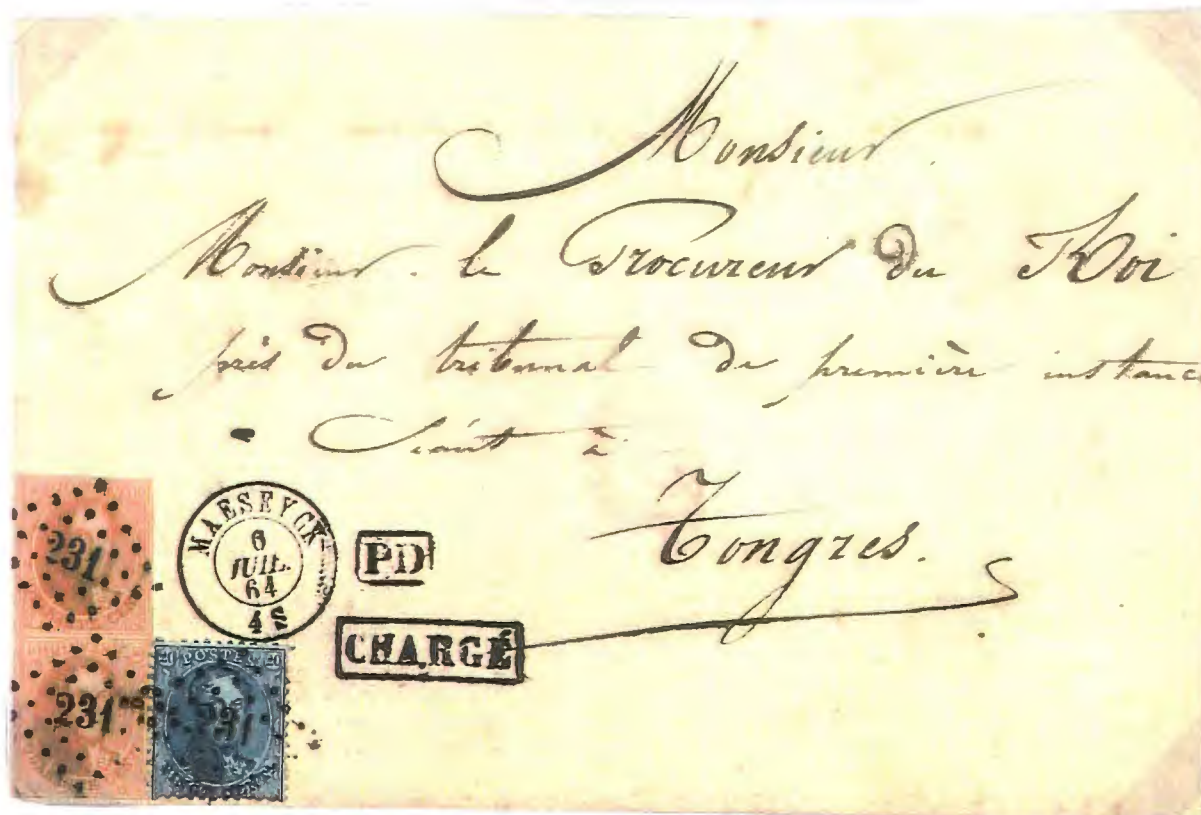 Monsieur
Monsieur le Procureur du Roi
près du tribunal de première instance
Séant à
Tongres.
MAESEYCK
6
JUIL.
64
4 S
PD
CHARGÉ
231
231
20 POSTES 20
231